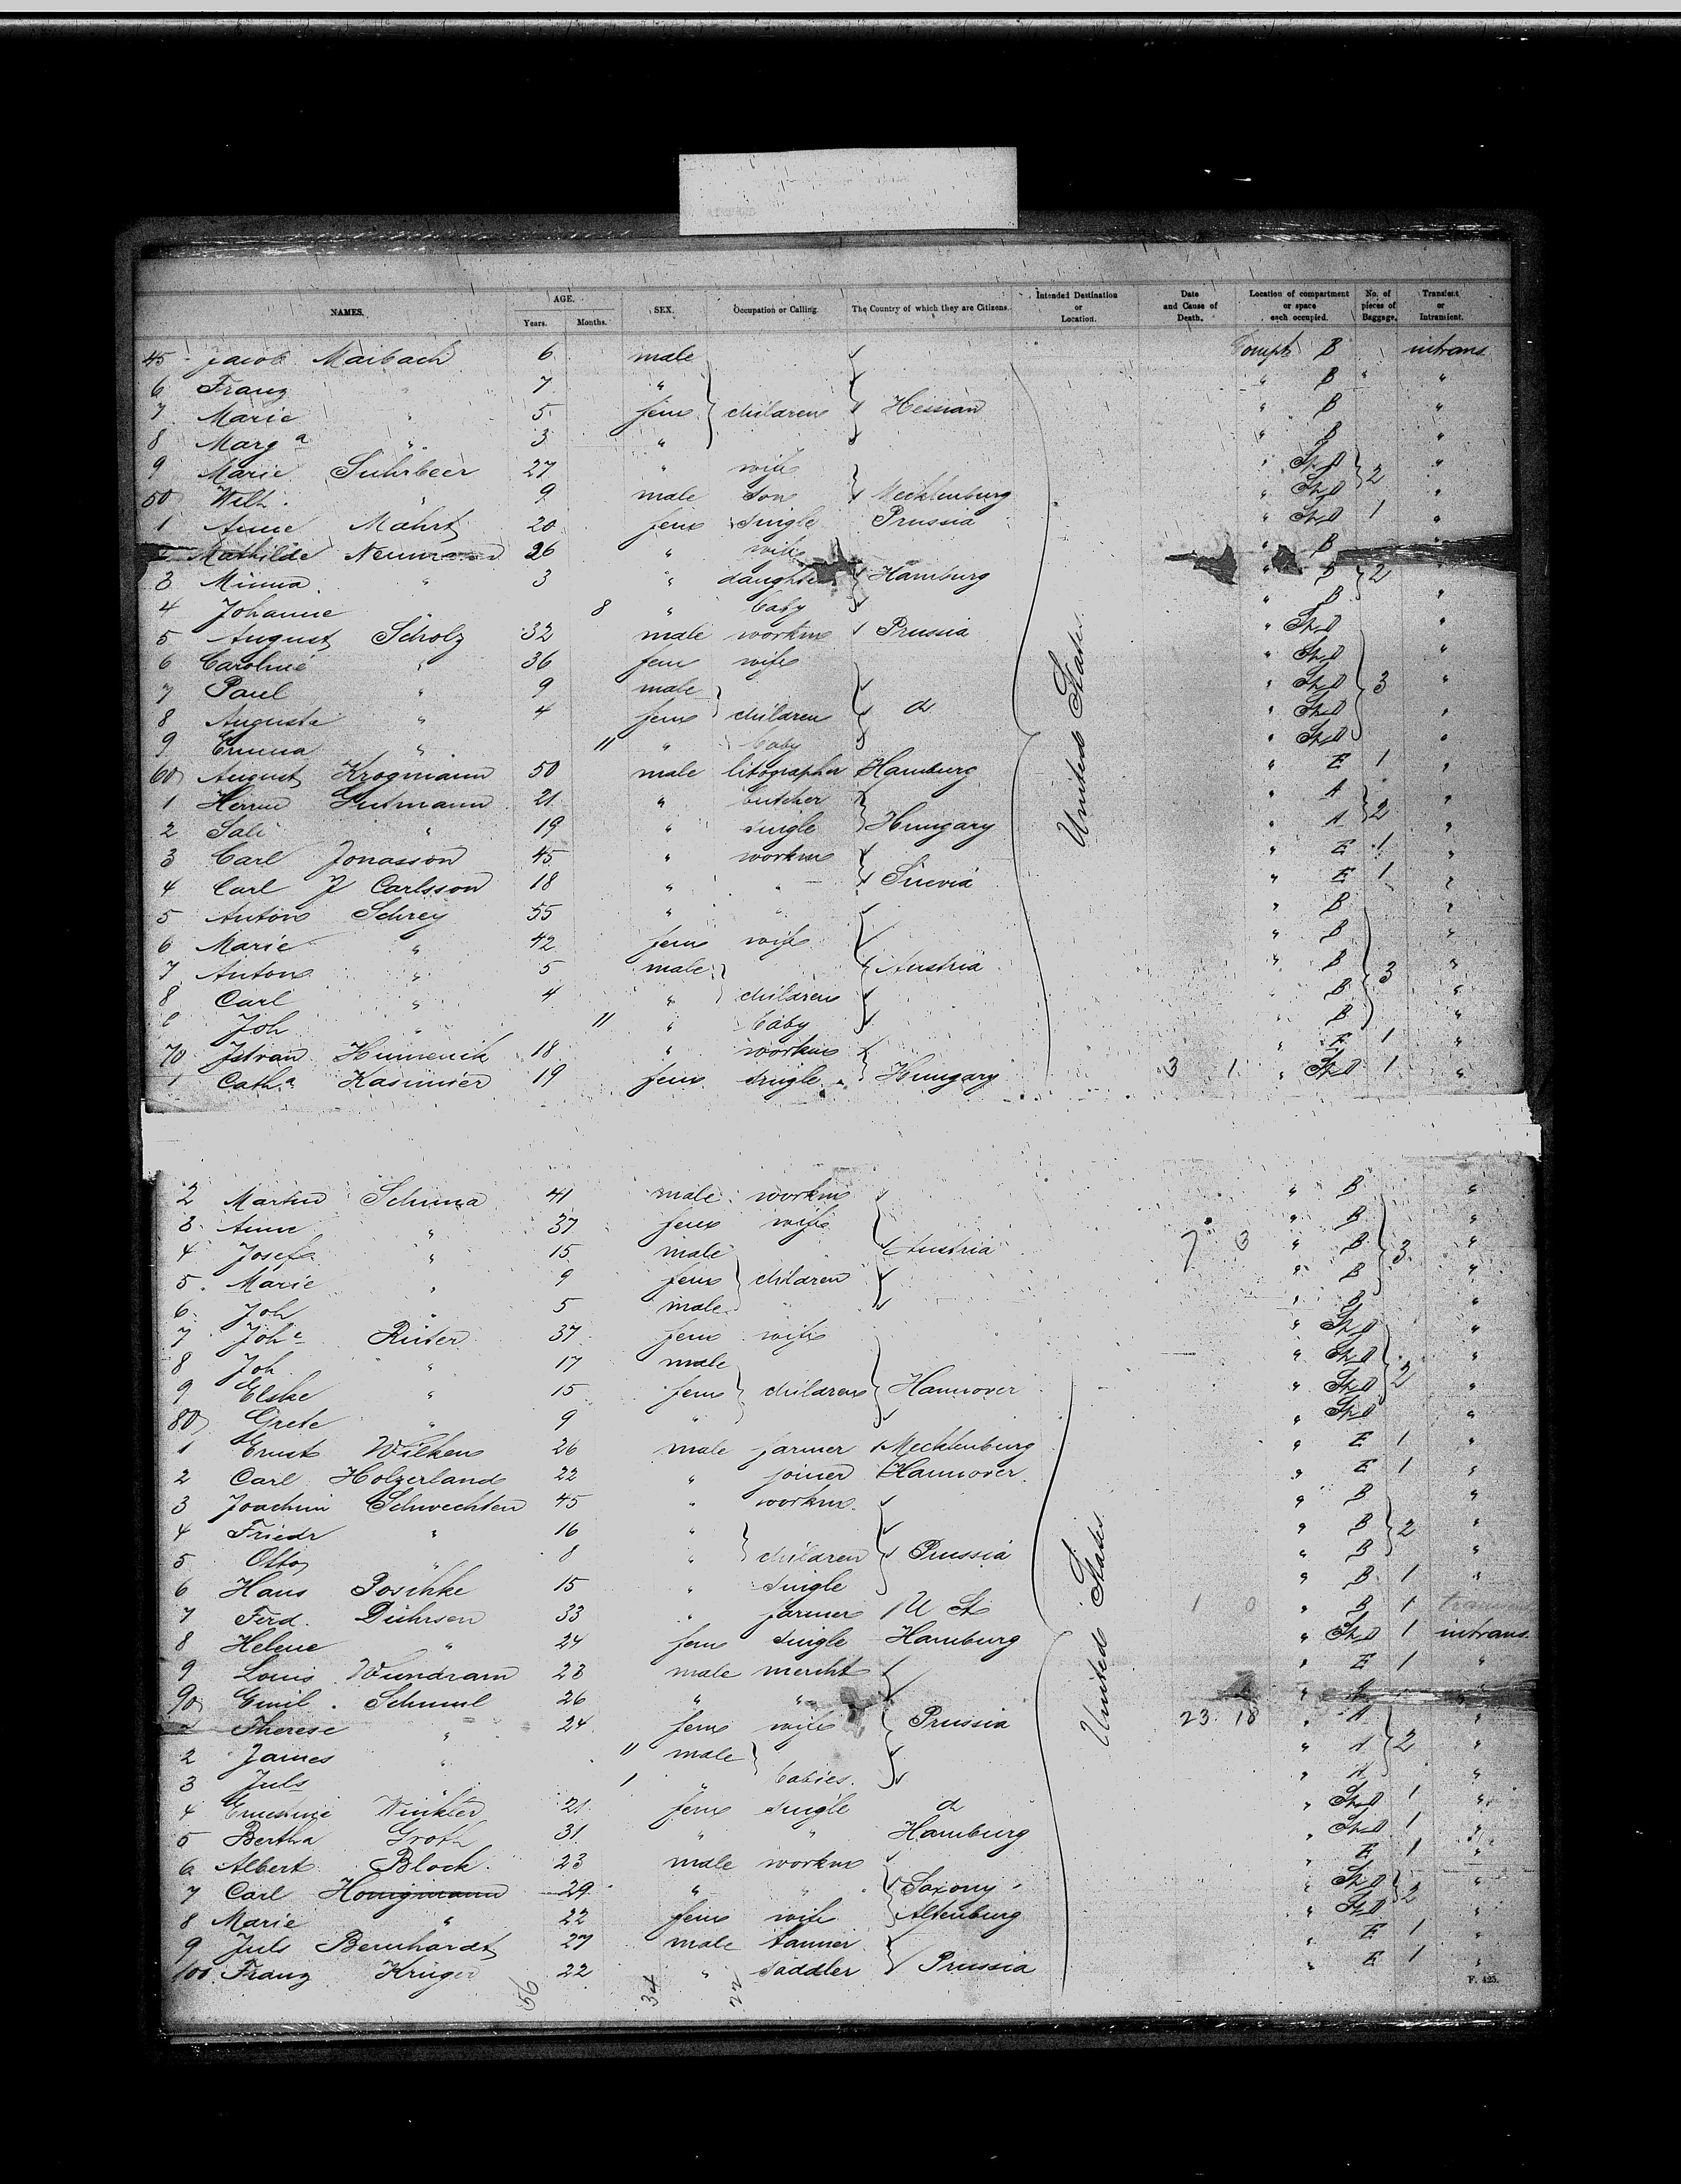 NAMES. AGE. Years. Months. SEX. Occupation or Calling. The Country of which they are Citizens. Intended Destination or Location. Date and Cause of Death. Location of compartment or space each occupied. No. of pieces of Baggage. Transient or Intransient.
45 Jacob Maibach 6 male Compt B intrans
6 Franz " 7 " " B " "
7 Marie " 5 fem children Hessian " B "
8 Marg a " 3 " " B "
9 Marie Suhrbeer 27 " wife " St D 2 "
50 Wilh. " 9 male son Mecklenburg " St D "
1 Anne Mahrt 20 fem single Prussia " St D 1 "
Mathilde Neumann 26 " wife " B "
3 Minna " 3 " daughter Hamburg " B 2 "
4 Johanne 8 " baby " B "
5 August Scholz 32 male workm Prussia " St D "
6 Caroline " 36 fem wife " St D "
7 Paul " 9 male " St D 3 "
8 Auguste " 4 fem children d " St D "
9 Emma " 11 " baby " St D "
60 August Krogmann 50 male litographer Hamburg " E 1 "
1 Herm Gutmann 21 " butcher " A "
2 Sali " 19 " single Hungary " A 2 "
3 Carl Jonasson 45 " workm " E 1 "
4 Carl J Carlsson 18 " " Suevia " E 1 "
5 Anton Schrey 55 " " " B "
6 Marie " 42 fem wife " B "
7 Anton " 5 male Austria " B 3 "
8 Carl " 4 " children B "
Joh " 11 " baby " B "
70 Istvan 18 " workm " E 1 "
1 Cath.a Kasimier 19 fem single Hungary 3 1 " St D 1 "
United States
2 Martin Schuma 41 male workm " B "
3 Anne " 37 fem wife " B "
4 Josef " 15 male Austria 7 3 " B 3 "
5 Marie " 9 fem children " B "
6 Joh " 5 male " B "
7 Joh e Rüter 37 fem wife " St D "
8 Joh " 17 male " St D "
9 Elske " 15 fem children Hannover " St D 2 "
80 Grete " 9 " " St D "
1 Ernst Wilken 26 male farmer Mecklenburg " E 1 "
2 Carl Holzerland 22 " joiner Hannover " E 1 "
3 Joachim Schwechten 45 " workm " B "
4 Friedr " 16 " " B 2 "
5 Otto " 8 " children Prussia " B "
6 Hans Poschke 15 " single " B 1 "
7 Ferd. Dührsen 33 " farmer U St 1 0 " B 1 transient
8 Helene " 24 fem single Hamburg " St D 1 intrans
9 Louis Wundram 23 male mercht " E 1 "
90 Emil Schuml 26 " " "
Therese " 24 fem wife Prussia 23 18 " A "
2 James " 11 male " A 2 "
3 Juls " 1 " babies " A "
4 Ernestine Winkler 21 fem single d " St D 1 "
5 Bertha Groth 31 " " Hamburg " St D 1 "
6 Albert Block 23 male workm " E 1 "
7 Carl Honigmann 29 " " Saxony " St D 2 "
8 Marie " 22 fem wife Altenburg " St D "
9 Juls Bernhardt 27 male tanner " E 1 "
100 Franz Krüger 22 " saddler Prussia " E 1
United States
56 34 22
F. 425.